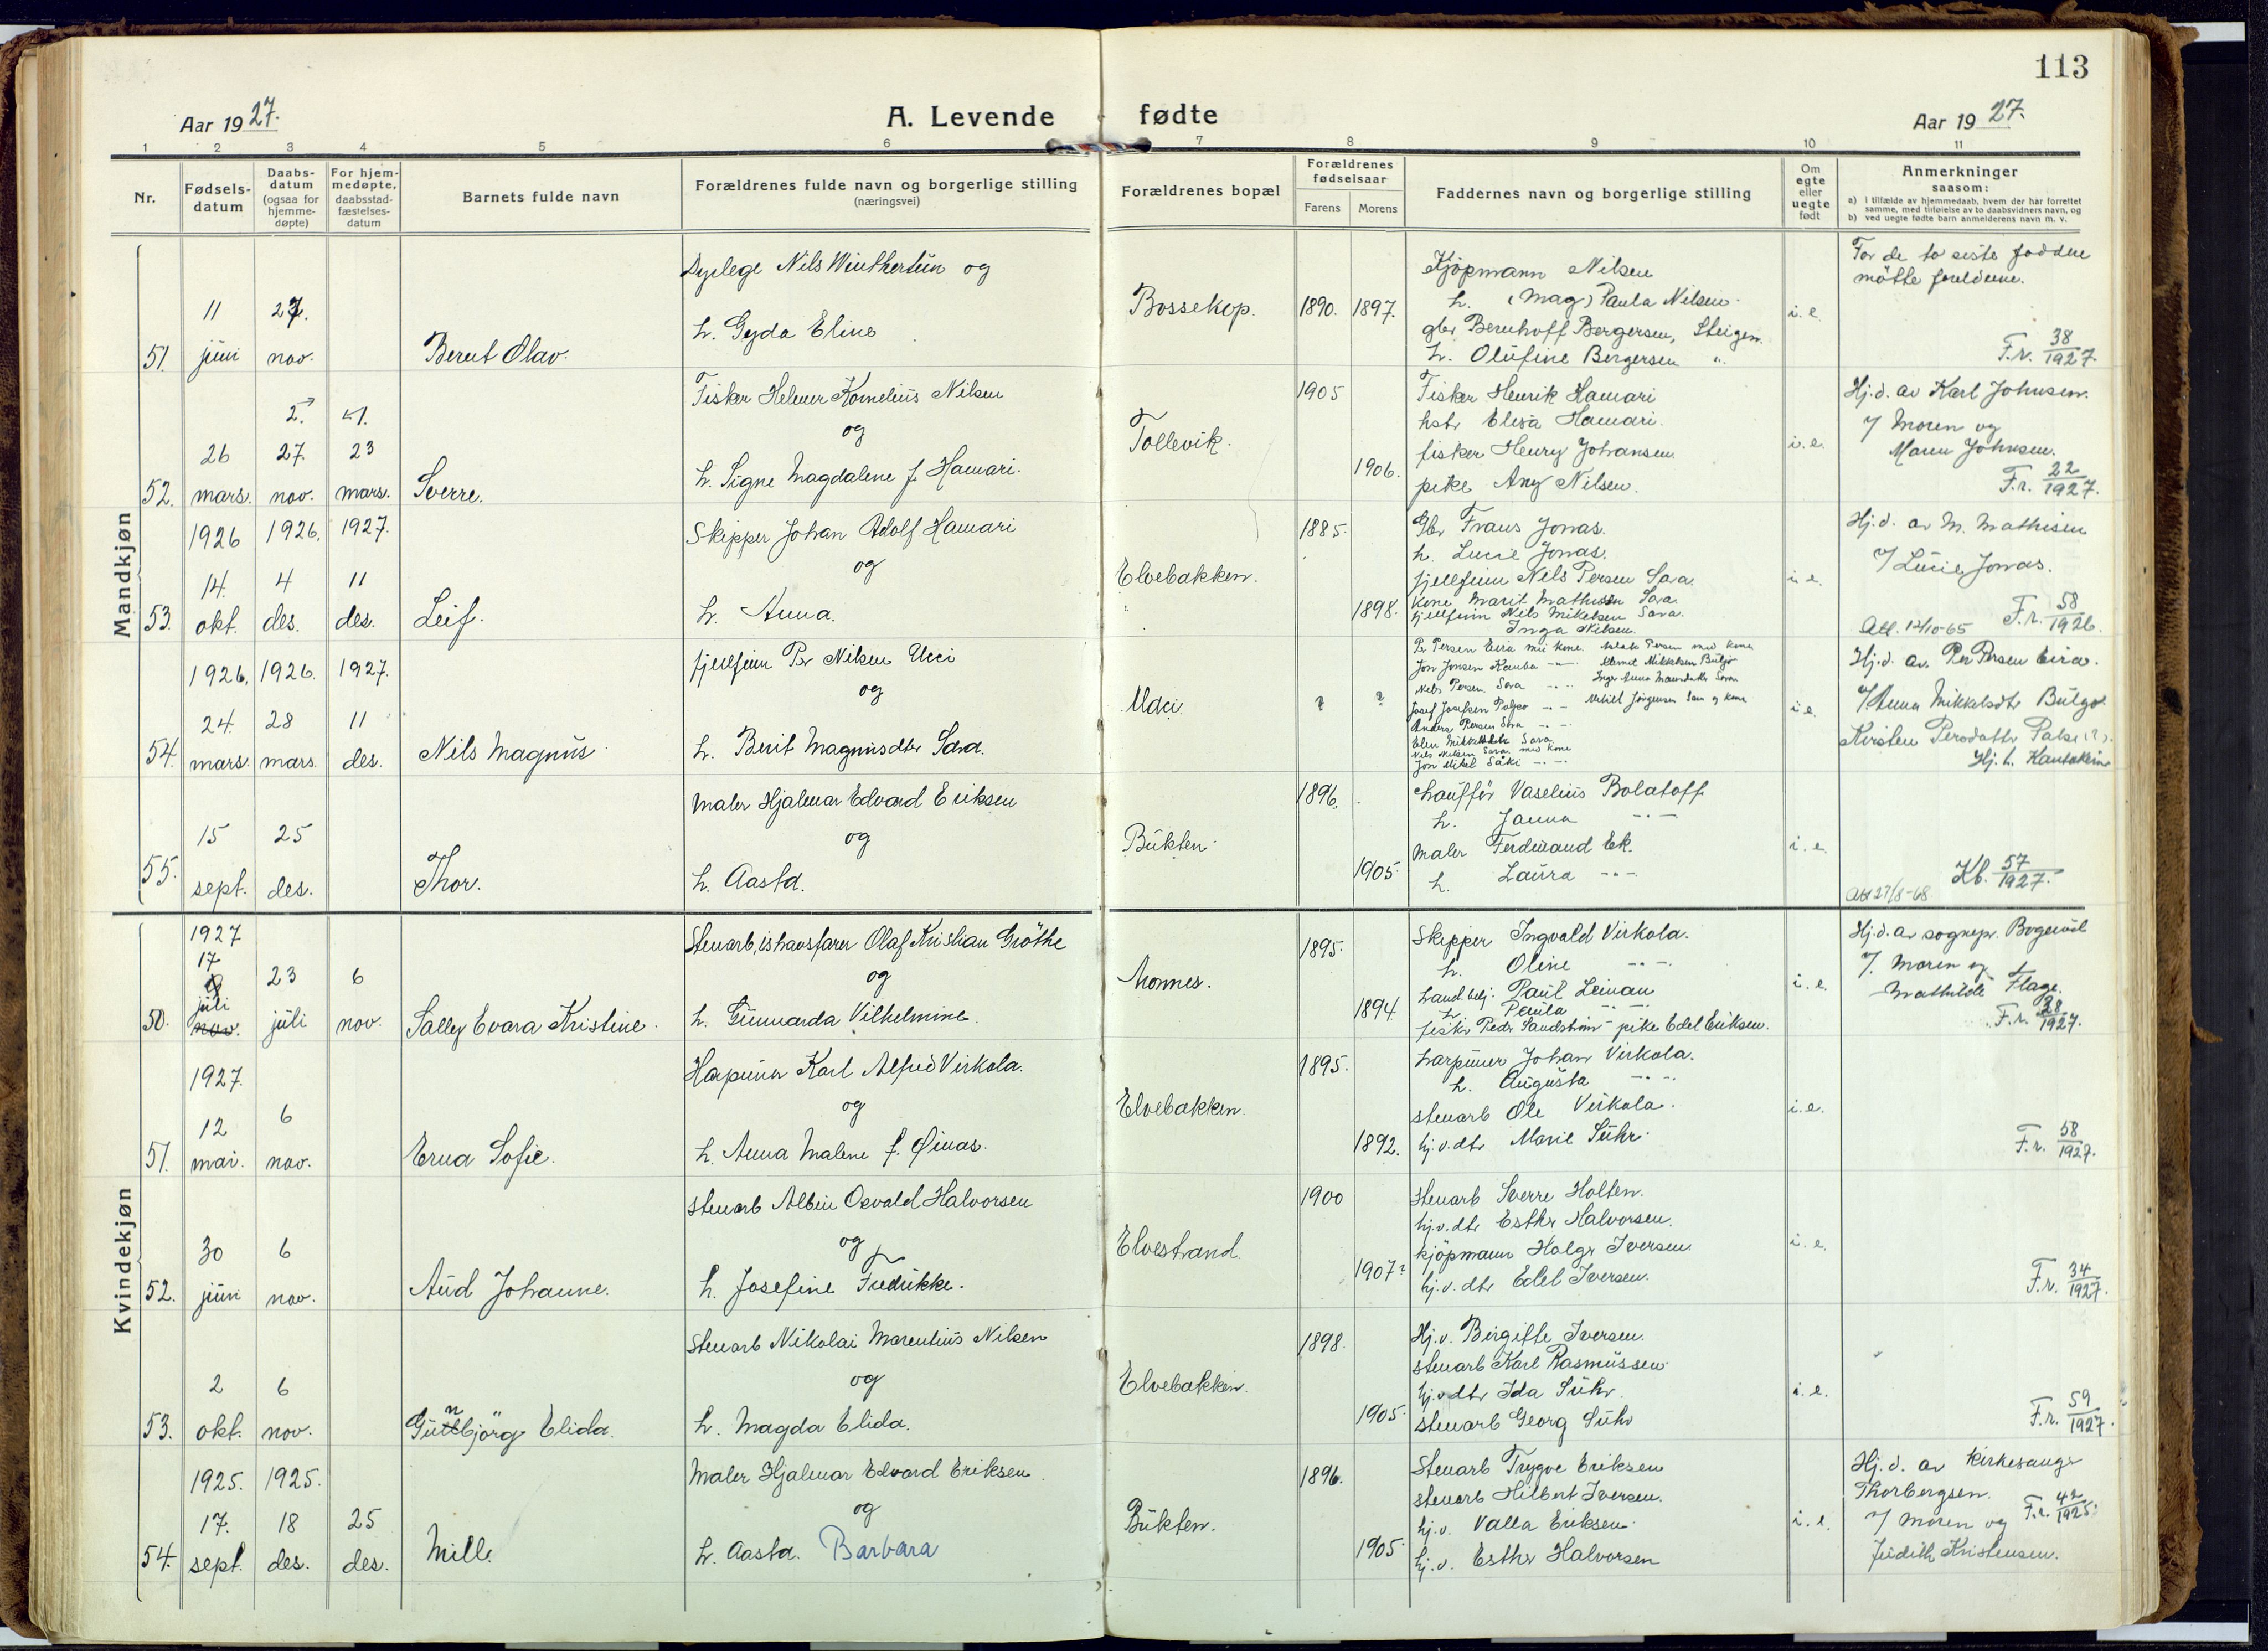 113
Aar 1927.
A. Levende fødte
Aar 1927.
1 2 3 4 5 6 7 8 9 10 11
Nr.
Fødsels-
datum
Daabs-
datum
(ogsaa for
hjemme-
døpte)
For hjem-
medøpte,
daabsstad-
fæstelses-
datum
Barnets fulde navn
Forældrenes fulde navn og borgerlige stilling
(næringsvei)
Forældrenes bopæl
Forældrenes
fødselsaar
Farens Morens
Faddernes navn og borgerlige stilling
Om
egte
eller
uegte
født
Anmerkninger
saasom:
a) i tilfælde av hjemmedaab, hvem der har forrettet
samme, med tilføielse av to daabsvidners navn, og
b) ved uegte fødte barn anmelderens navn m. v.
Mandkjøn
51.
11
juni
27.
nov.
Bernt Olav.
Dyrlege Nils Winthertun og
h. Gyda Eline
Bossekop.
1890. 1897.
Kjøpmann Nilsen
h. (Mag) Paula Nilsen.
gbr Bernhoff Bergersen, Steigen.
h. Olufine Bergersen "
i.e.
For de to siste faddere
møtte foreldrene.
F.r. 38/1927.
52.
26
mars.
27.
nov.
23
mars.
Sverre.
Fisker Helmer Kornelius Nilsen
og
h. Signe Magdalene f. Hamari.
Tollevik.
1905
1906.
Fisker Henrik Hamari
hstr Elisa Hamari.
fisker Henry Johansen
pike Any Nilsen.
i.e.
Hj.d. av Karl Johnsen.
v/ Moren og
Maren Johnsen.
F.r. 22/1927.
53.
1926
14.
okt.
1926.
4
des.
1927.
11
des.
Leif.
Skipper Johan Adolf Hamari
og
h. Anna.
Elvebakken.
1885.
1898.
Gbr Frans Jonas.
h. Lucie Jonas.
fjellfinn Nils Persen Sara
Kone Marit Mathisdtr Sara
fjellfinn Nils Mikelsen Sara.
Inga Nilsen.
i.e.
Hj.d. av M. Mathisen
v/ Lucie Jonas.
F.r. 58/1926.
Att. 12/10-65
54.
1926.
24.
mars.
1926.
28
mars.
1927.
11
des.
Nils Magnus
fjellfinn Per Nilsen Ucci
og
h. Berit Magnusdtr Sara.
? ?
Per Persen Eira med kone.
Nils Persen Sara
Anders Persen Sara
Nils Nilsen Sara med kone
i.e.
Hj.d. av Per Persen Eira.
v/ Anna Mikkelsdtr Buljo.
Kirsten Persdatter
Hj. h. Kautokeino
55.
15
sept.
25
des.
Thor.
Maler Hjalmar Edvard Eriksen
og
h. Aasta.
Bukten.
1896.
1905
Chauffør Vaselius Bolatoff
h. Janna -"-
Maler Ferdinand Ek.
h. Laura -"-
i.e.
Kb. 57/1927.
Att 27/8-68
Kvindekjøn
50.
1927
17
juli
nov.
23
juli
6
nov.
Sally Evara Kristine.
Stenarb, ishavsfarer Olaf Kristian Grøthe
og
h. Gunnarda Vilhelmine.
1895.
1894.
Skipper Ingvald Virkola.
h. Oline -"-
handl.betj. Paul Leinan
h. Paula -"-
fisker Peder Sandstrøm - pike Edel Eriksen.
i.e.
Hj.d. av sognepr.
v/ moren og
Mathilde Flage.
F.r. 38/1927.
51.
1927.
12
mai.
6
nov.
Erna Sofie.
Harpuner Karl Alfred Virkola.
og
h. Anna Malene f. Øinas.
Elvebakken.
1895.
1892.
harpuner Johan Virkola.
h. Augusta -"-
stenarb Ole Virkola.
hj.v.dtr Marie Suhr.
i.e.
F.r. 58/1927.
52.
30
juni
6
nov.
Aud Johanne.
stenarb Albin Osvald Halvorsen
og
h. Josefine Fredrikke.
Elvestrand.
1900
1907?
Stenarb Sverre Holten.
hj.v.dtr Esther Halvorsen.
kjøpmann Holger Iversen
hj.v.dtr Edel Iversen.
i.e.
F.r. 34/1927.
53.
2
okt.
6
nov.
Gunbjörg Elida.
Stenarb Nikolai Marentius Nilsen
og
h. Magda Elida.
Elvebakken.
1898.
1905
Hj.v. Birgitte Iversen.
stenarb Karl Rasmussen
hj.v.dtr Ida Suhr.
stenarb Georg Suhr
i.e.
F.r. 59/1927.
54.
1925.
17.
sept.
1925.
18
des.
25
des.
Mille
Maler Hjalmar Edvard Eriksen.
og
h. Aasta. Barbara
Bukten.
1896.
1905
Stenarb Trygve Eriksen
stenarb Hilbert Iversen.
hj.v. Valla Eriksen
hj.v. Esther Halvorsen
i.e.
Hj.d. av Kirkesanger
Thorbergsen.
v/ Moren og F.r. 42/1925.
Judith Kristensen.